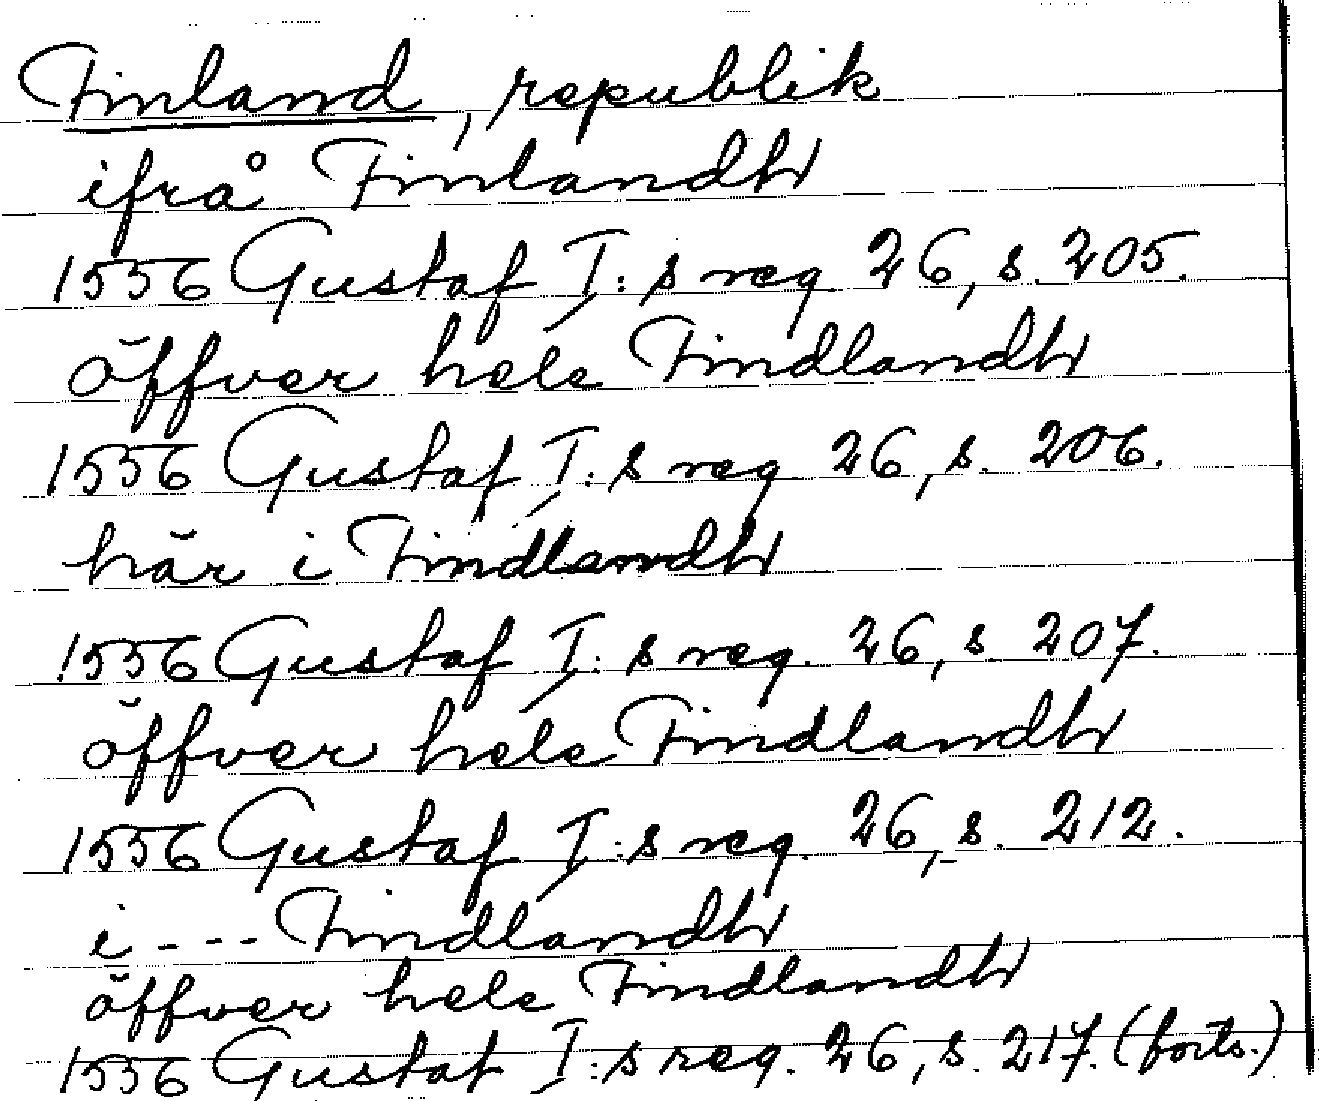 Finland, republik
ifrå Finlandh
1556 Gustaf I:s reg 26, s. 205.
öffver hele Findlandh
1556 Gustaf I:s reg 26, s. 206.
här i Findlandh
1556 Gustaf I:s reg. 26, s. 207.
öffver hele Findlandh
1556 Gustaf I:s reg. 26, s. 212.
i --- Findlandh
öffver hele Findlandh
1556 Gustaf I:s reg. 26, s. 217. (forts.)